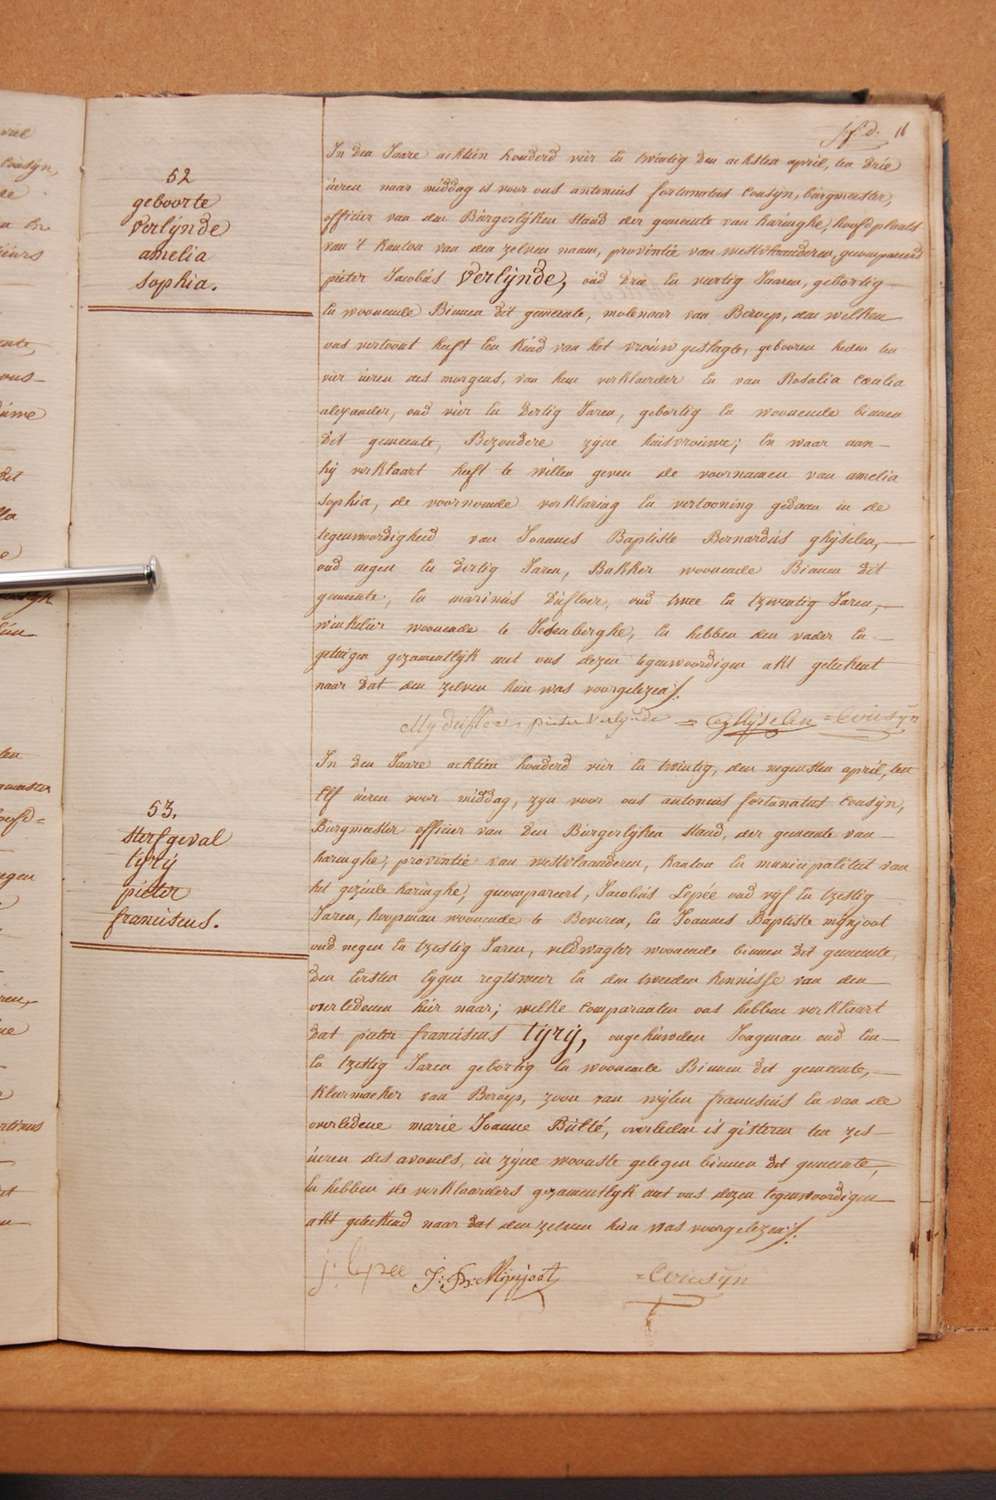 16
52
geboorte
Verlynde
amelia
sophia.
In den Jaare achtien honderd vier en twintig den achsten april, ten drie
üeren naar middag is voor ons antonius fortunatus Cousÿn, bürgmeester,
officier van den Bürgerlyken stand der gemeente van haringhe, hoofdplaats
van 't kanton van den zelven naam, provintie van westvlaanderen, gecompareerd
pieter Jacobüs Verlÿnde, oüd drie en veertig Jaaren, gebortig
en woonende Binnen dit gemeente, molenaer van Beroep, den welken
ons vertoont heeft een kind van het vroüw geslagte, gebooren heden ten
vier üeren des morgens, van hem verklaerder en van Rosalia Cæcilia
alexander, oud vier en dertig Jaren, gebortig en woonende binnen
dit gemeente, Bezondere zÿne huisvrouwe; en waar aan
hij verklaart heeft te willen geven de voornamen van amelia
sophia, de voornoemde verklaring en vertooning gedaan in de
tegenwoordigheid van Joannes Baptiste Bernardüs ghÿselen,
oud negen en dertig Jaren, Bakker woonende Binnen dit
gemeente, en marinüs Düfloer, oud twee en tzwentig Jaren,
winkelier woonende te Jesenberghe, en hebben den vader en
getuigen gezamentlÿk met ons dezen tegenwoordigen akt getekent
naar dat den zelven hün was voorgelezen.
pieter Verlynde = Ghÿselen = Cousÿn
53.
sterfgeval
tyrÿ
pieter
franciscus.
In den Jaare achtien honderd vier en twintig, den negensten april, ten
Elf üeren voor middag, zyn voor ons antonius fortunatus Cousÿn,
Bürgmeester officier van den Bürgerlyken stand, der gemeente van
haringhe, provintie van westvlaanderen, kanton en municipaliteit van
het gezeide haringhe, gecompareert, Jacobüs Lepée oud vÿf en tzestig
Jaren, koopman woonende te Beveren, en Joannes Baptiste mÿnjoot
oud negen en tzestig Jaren, veldwagter woonende binnen dit gemeente,
den Eersten Eygen regtsweer en den tweeden kennisse van den
overledenen hier naar; welke Comparanten ons hebben verklaart
dat pieter franciscus tÿrÿ, ongehuwden Jongman oud Een
en tzestig Jaren gebortig en woonende Binnen dit gemeente,
kleermaeker van Beroep, zoon van wÿlen franciscus en van de
overledene marie Joanne Bülté, overleden is gisteren ten zes
üeren des avonds, in zÿne woonste gelegen binnen dit gemeente,
en hebben de verklaarders gezamentlyk met ons dezen tegenwoordigen
akt getekend naar dat den zelven hün was voorgelezen.
j: lepeee J: Bte Mÿnjoot = Cousÿn